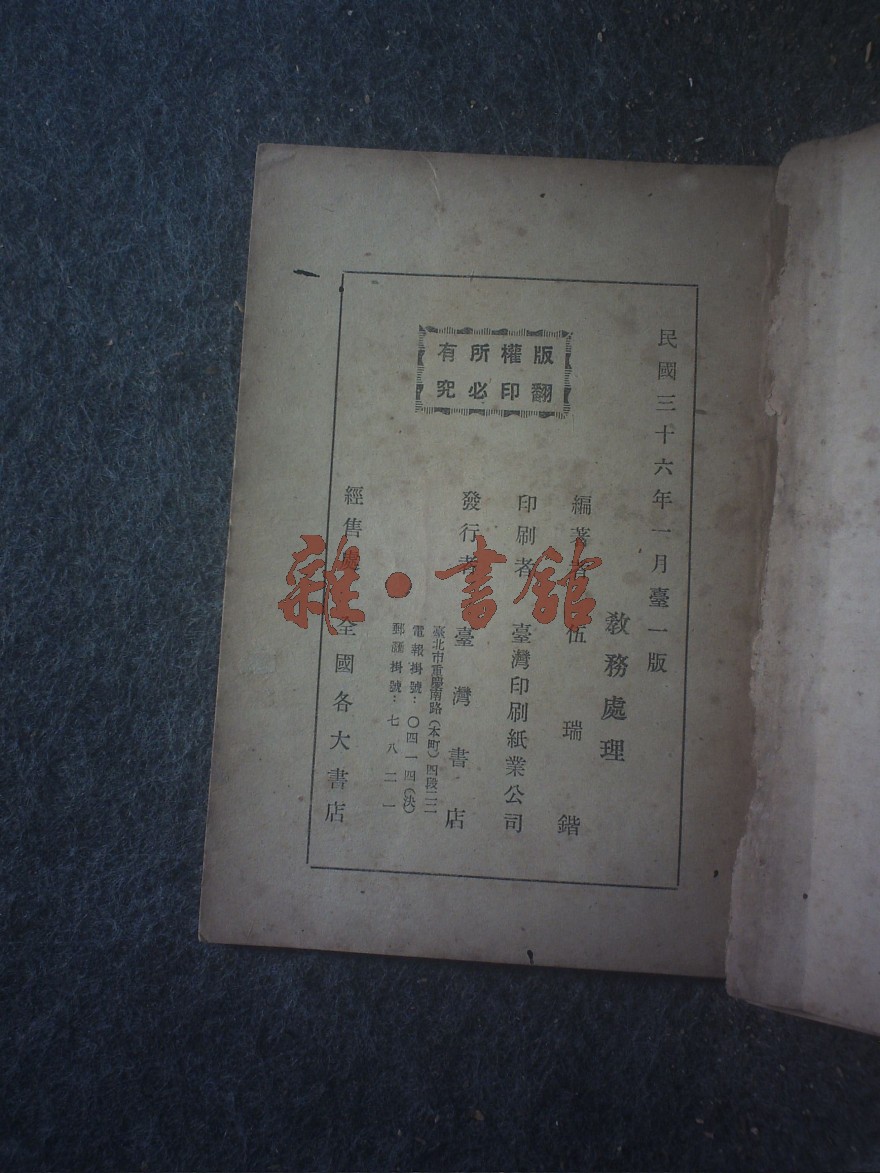 民國三十六年一月臺一版
教務處理
編著者 伍瑞鍇
印刷者 臺灣印刷紙業公司
發行者 臺灣書店
臺北市重慶南路(本町)四段二二
電報掛號：〇四一四(決)
郵政掛號：七八二一
經售處 全國各大書店
版權所有
翻印必究
雜·書館